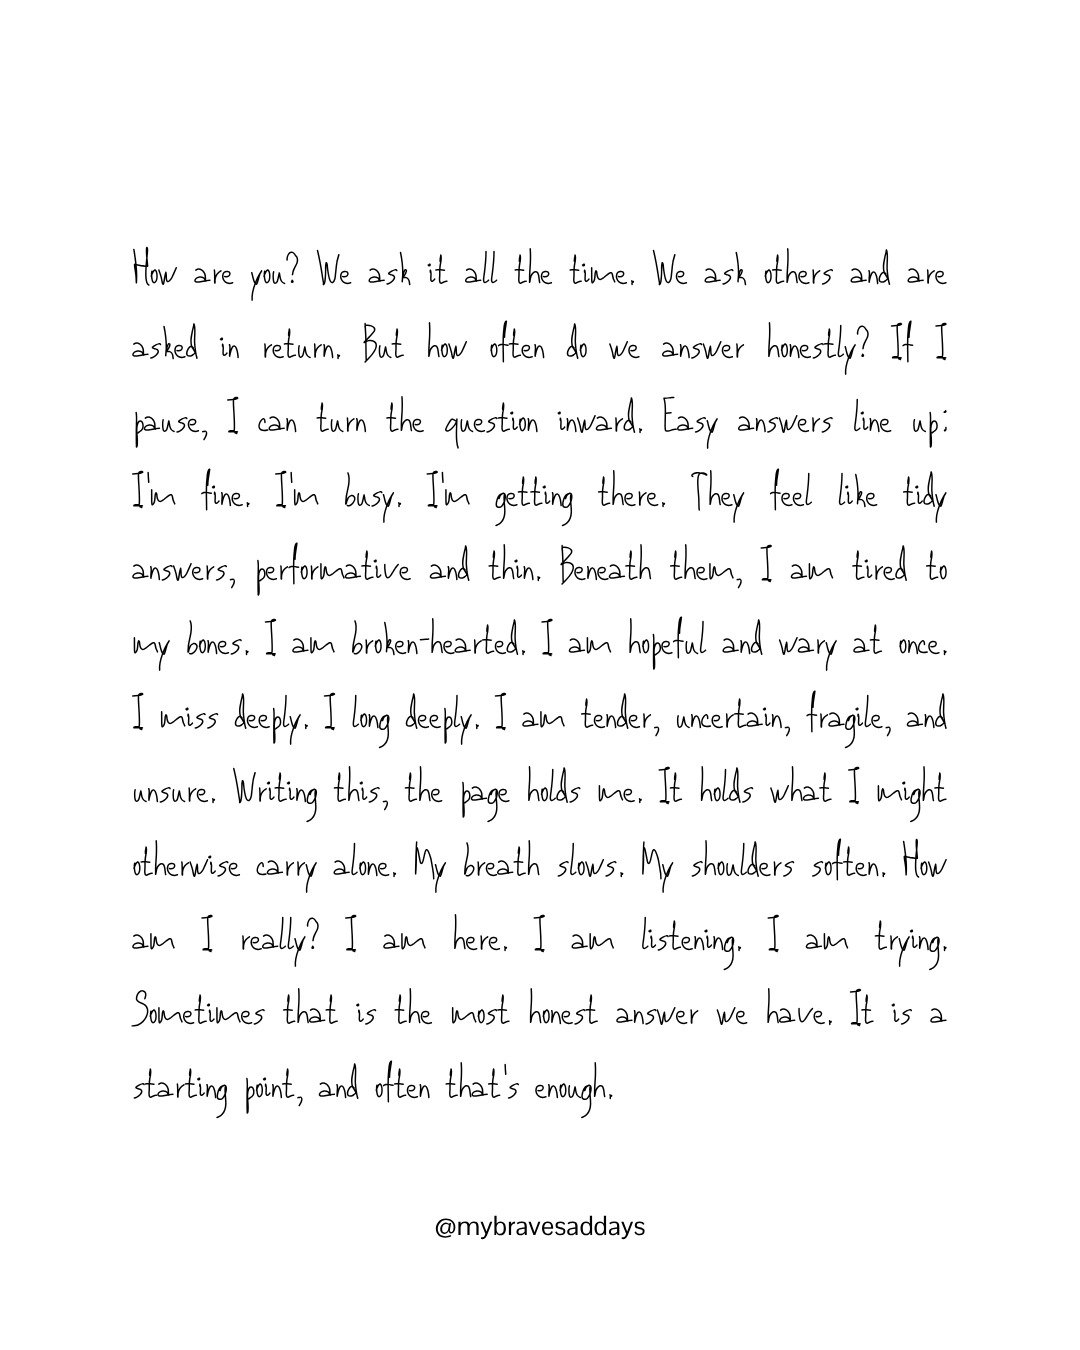 How are you? We ask it all the time. We ask others and are
asked in return. But how often do we answer honestly? If I
pause, I can turn the question inward. Easy answers line up:
I'm fine. I'm busy. I'm getting there. They feel like tidy
answers, performative and thin. Beneath them, I am tired to
my bones. I am broken-hearted. I am hopeful and wary at once.
I miss deeply. I long deeply. I am tender, uncertain, fragile, and
unsure. Writing this, the page holds me. It holds what I might
otherwise carry alone. My breath slows. My shoulders soften. How
am I really? I am here. I am listening. I am trying.
Sometimes that is the most honest answer we have. It is a
starting point, and often that's enough.
@mybravesaddays